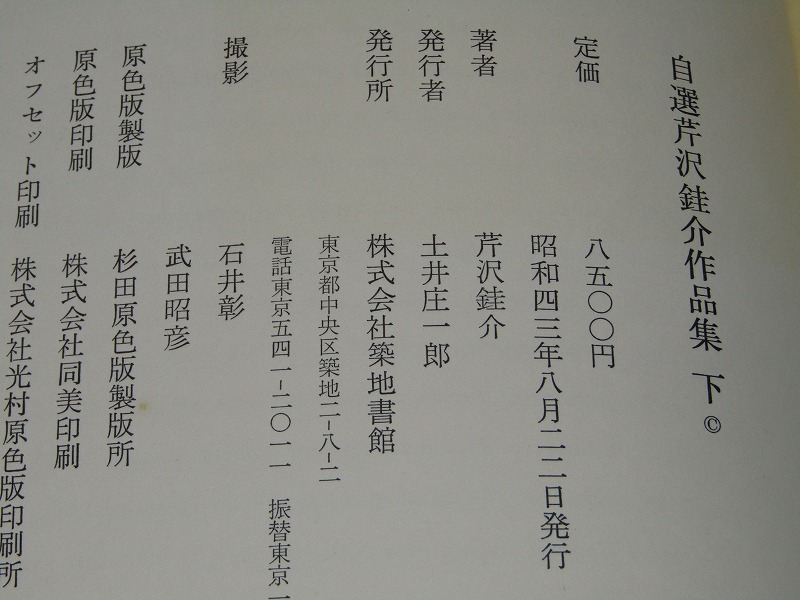 自選芹沢銈介作品集 下 ©
定価 八五〇〇円
昭和四三年八月二二日発行
著者 芹沢銈介
発行者 土井庄一郎
発行所 株式会社築地書館
東京都中央区築地二-八-二
電話東京五四一-二〇一一 振替東京一
撮影 石井彰
武田昭彦
原色版製版 杉田原色版製版所
原色版印刷 株式会社同美印刷
オフセット印刷 株式会社光村原色版印刷所